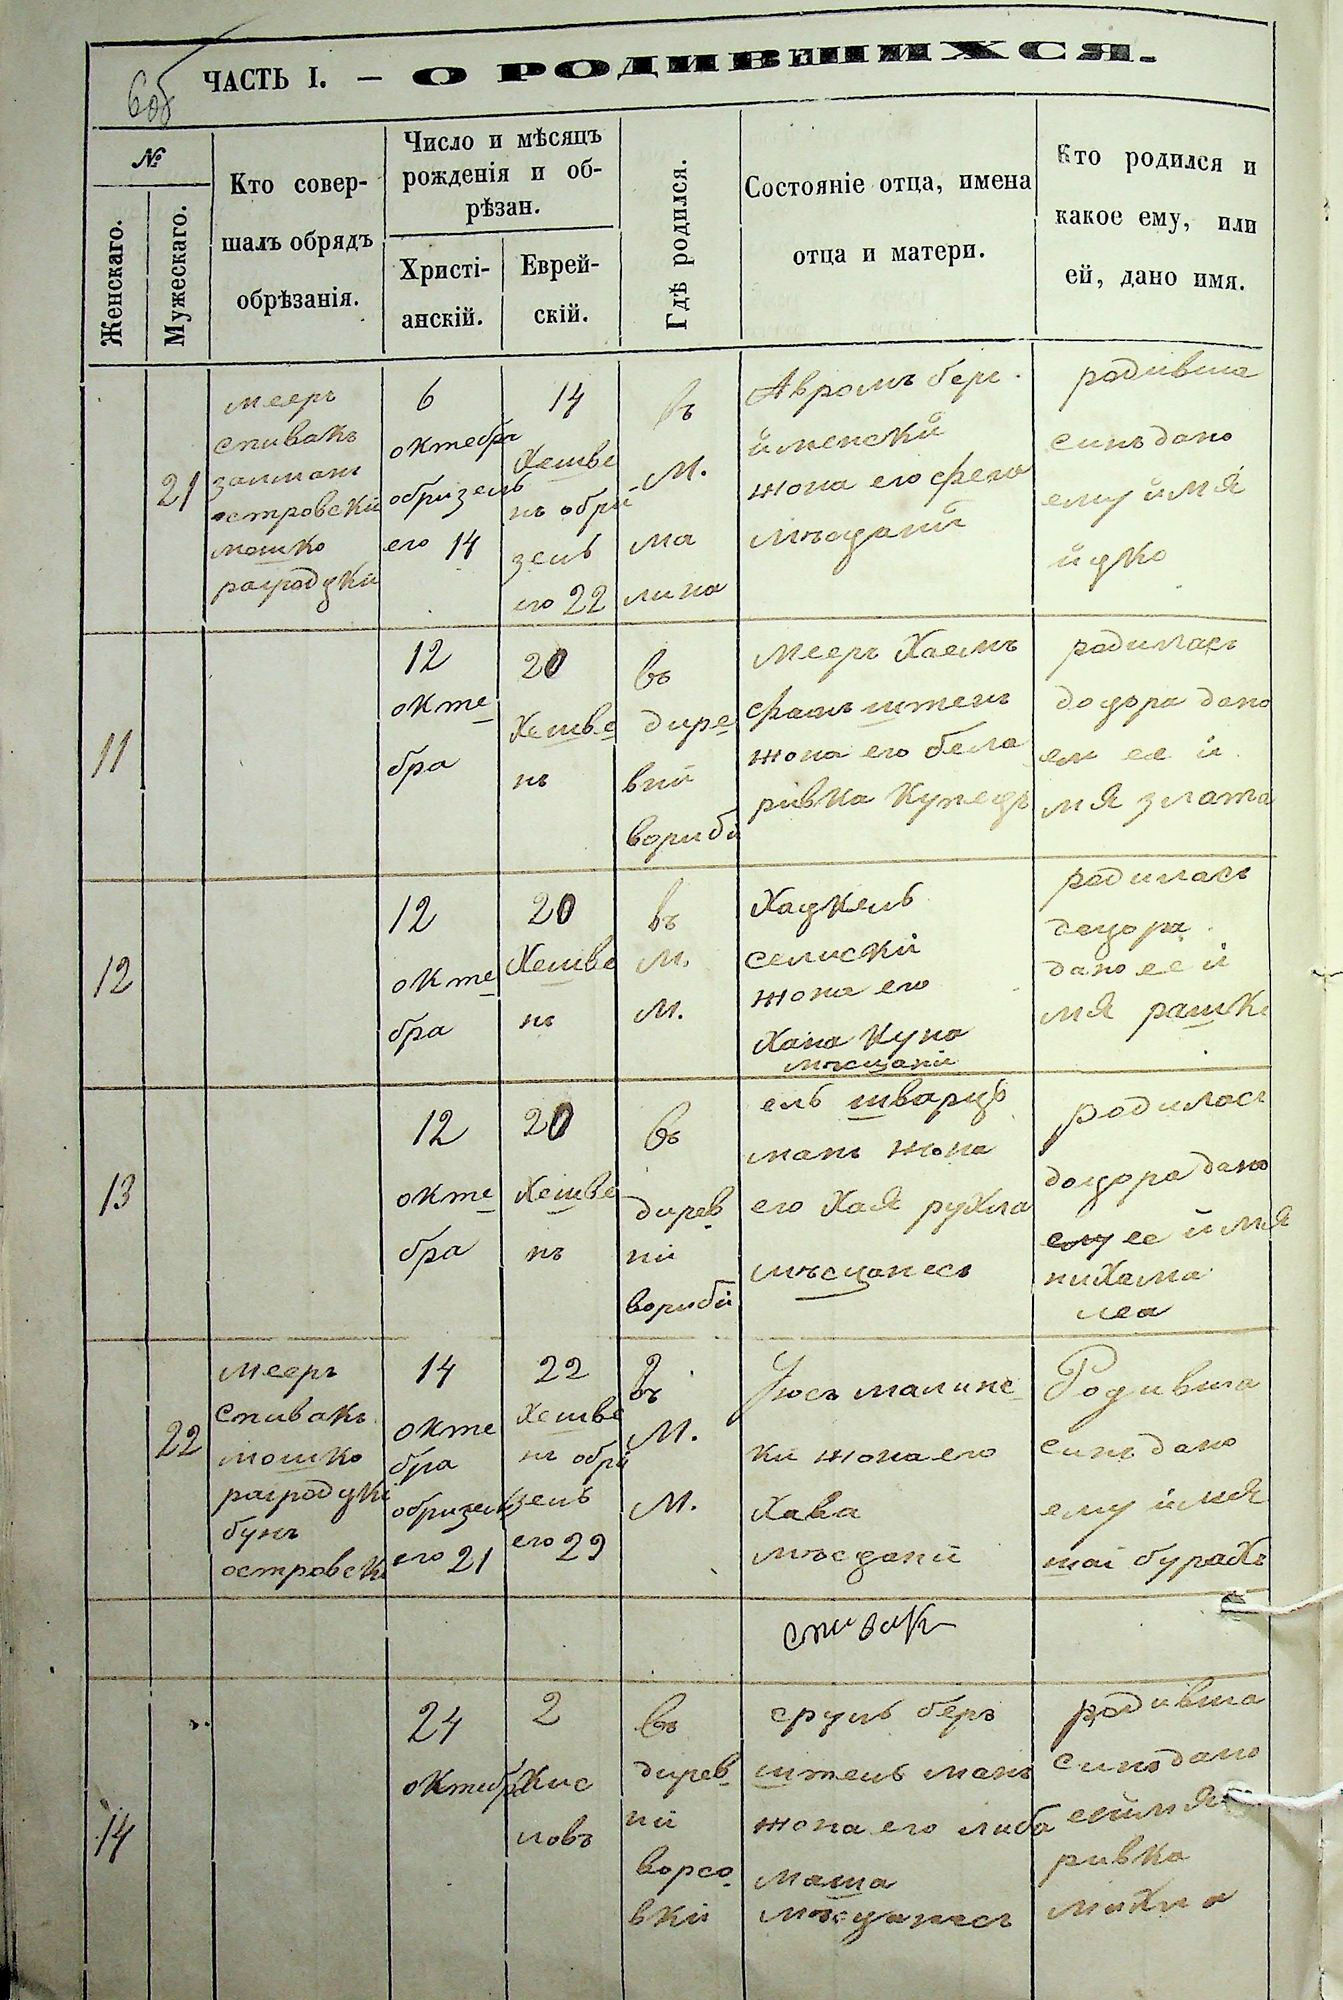 6об
ЧАСТЬ I. — О РОДИВШИХСЯ.
№
Женскаго.
Мужескаго.
Кто совер-
шалъ обрядъ
обрѣзанія.
Число и мѣсяцъ
рожденія и об-
рѣзан.
Христі-
анскій.
Еврей-
скій.
Гдѣ родился.
Состояніе отца, имена
отца и матери.
Кто родился и
какое ему, или
ей, дано имя.
21
мееръ
спивакъ
залманъ
островскій
мошко
рагродцки
6
октебръ
обризель
его 14
14
Хешве
нъ обри
зель
его 22
въ
м.
ма
лина
Авромъ бер
жона его
родивша
синъ дано
ему ймя
йцко
11
12
окте
бра
20
Хешве
нъ
въ
дире
вни
вориби
мееръ Хаемъ
жона его бела
ривка купецъ
родиласъ
доцора дано
ее й
мя злата
12
12
окте
бра
20
Хешве
нъ
въ
м.
м.
Хацкель
селискі
жона его
Хана Куна
мъсщаній
родиласъ
доцора
дано ее й
мя рашке
13
12
окте
бра
20
Хешве
нъ
въ
дирев
ній
вориби
ель шварцъ
манъ жона
его Хая рухла
мъсцанесъ
родиласъ
доцора дано
ее ймя
нихама
леа
22
мееръ
спивакъ
мошко
рагродцкі
бунъ
островскі
14
окте
бра
обризель
его 21
22
Хешве
нъ обри
зель
его 29
въ
м.
м.
Юосъ малинс
ки жона его
Хава
мъсцаній
Родивша
синъ дано
ему ймя
шаі бурахъ
спивак
14
24
октебра
2
Кис
ловъ
въ
дирев
ній
ворсо
вкій
сруль беръ
штель манъ
жона его либа
маша
мъсцанесъ
родивша
синъ дано
ей ймя
ривка
махла